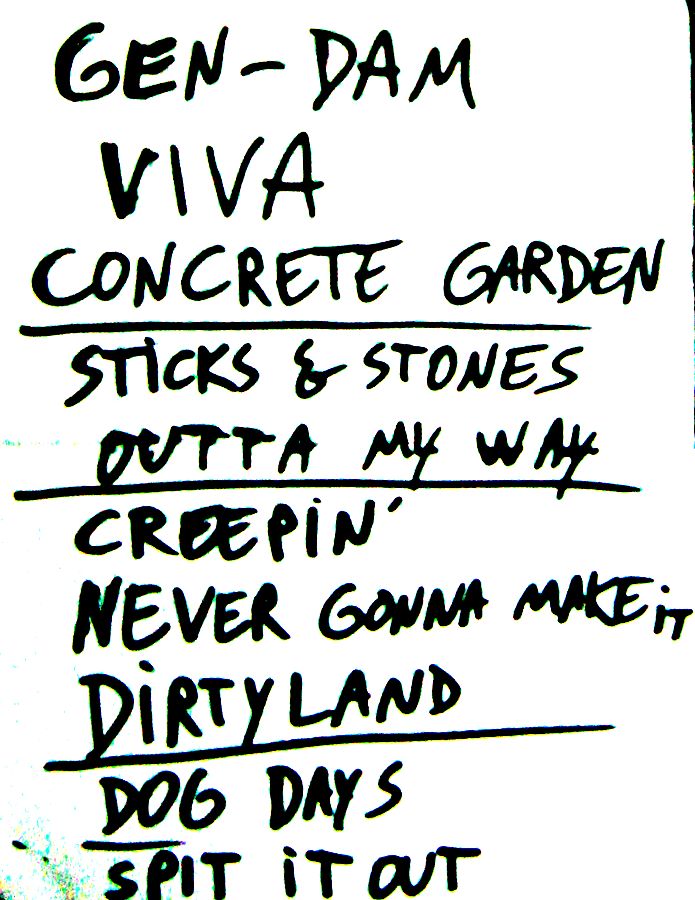 GEN-DAM
VIVA
CONCRETE GARDEN
STICKS & STONES
OUTTA MY WAY
CREEPIN'
NEVER GONNA MAKE iT
DiRTYLAND
DOG DAYS
SPIT iT OUT